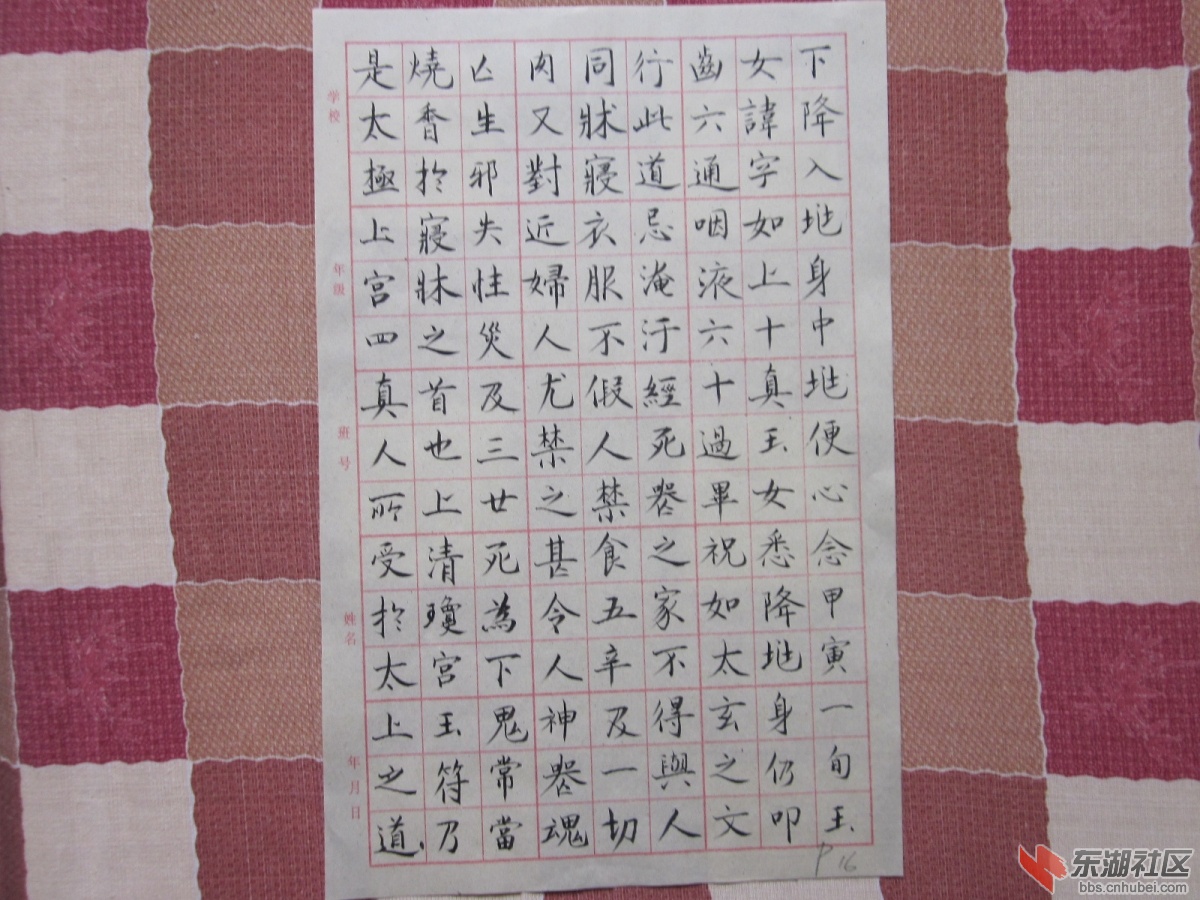 下降入垗身中垗便心念甲寅一旬玉
女諱字如上十真玉女悉降垗身仍叩
齒六通咽液六十過畢祝如太玄之文
行此道忌淹汙經死喪之家不得與人
同牀寢衣服不假人禁食五辛及一切
肉又對近婦人尤禁之甚令人神喪魂
亾生邪失性災及三世死為下鬼常當
燒香於寢牀之首也上清瓊宮玉符乃
是太極上宮四真人所受於太上之道
学校
年级
班号
姓名
年月日
P16
东湖社区
bbs.cnhubei.com